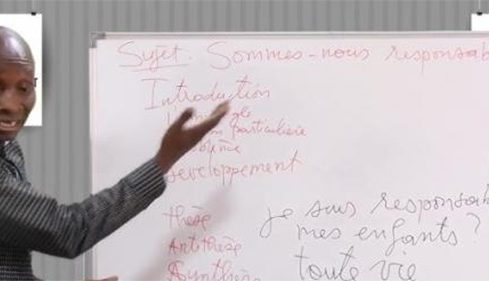 Sujet. Sommes-nous responsab
Introduction
particulière
Développement
thèse
Antithèse
Synthèse
je suis responsab
mes enfants?
toute vie